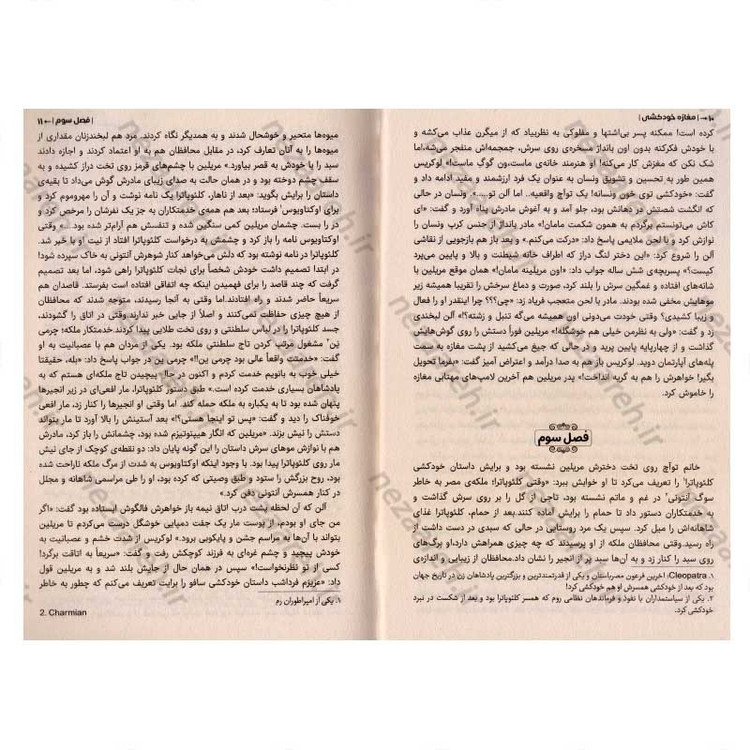 ۱۰ | مغازه خودکشی |
کرده است! ممکنه پسر بی‌اشتها و مفلوکی به نظربیاد که از میگرن عذاب می‌کشه و
با خودش فکرکنه بدون اون بانداژ مسخره‌ی روی سرش، جمجمه‌اش منفجر می‌شه،اما
شک نکن که مغزش کار می‌کنه! او هنرمند خانه‌ی ماست،ون گوگِ ماست!» لوکریس
همین طور به تحسین و تشویق ونسان به عنوان یک فرد ارزشمند و مفید ادامه داد و
گفت: «خودکشی توی خون ونسانه! یک تواچ واقعیه.. اما آلن تو....» ونسان در حالی
که انگشت شصتش در دهانش بود، جلو آمد و به آغوش مادرش پناه آورد و گفت: «ای
کاش می‌تونستم برگردم به همون شکمت مامان!» مادر بانداژ از جنس کرپ ونسان را
نوازش کرد و با لحن ملایمی پاسخ داد: «درکت می‌کنم.» و بعد باز هم بازجویی از نقاشی
آلن را شروع کرد: «این دختر لنگ دراز که اطراف خانه شیطنت و بالا و پایین می‌پرد
کیست؟» پسربچه‌ی شش ساله جواب داد: «اون مریلینه مامان!» همان موقع مریلین با
شانه‌های افتاده و غمگین سرش را بلند کرد، صورت و دماغ سرخش را تقریبا همیشه زیر
موهایش مخفی شده بود. مادر با لحن متعجب فریاد زد: «چی؟؟؟ چرا اینقدر او را فعال
و زیبا کشیدی؟ وقتی خودت می‌دونی اون همیشه می‌گه تنبل و زشته؟!» آلن لبخندی
زد و گفت: «ولی به نظرمن خیلی هم خوشگله!» مریلین فوراً دستش را روی گوش‌هایش
گذاشت و از چهارپایه پایین پرید و در حالی که جیغ می‌کشید از پشت مغازه به سمت
پله‌های آپارتمان دوید. لوکریس باز هم به صدا درآمد و اعتراض آمیز گفت: «بفرما تحویل
بگیر! خواهرش را هم به گریه انداخت!» پدر مریلین هم آخرین لامپ‌های مهتابی مغازه
را خاموش کرد.
فصل سوم
خانم تواچ روی تخت دخترش مریلین نشسته بود و برایش داستان خودکشی
کلئوپاترا۱ را تعریف می‌کرد تا او خوابش ببرد: «وقتی کلئوپاترا! ملکه‌ی مصر به خاطر
سوگ آنتونی۲ در غم و ماتم نشسته بود، تاجی از گل را بر روی سرش گذاشت و
به خدمتکاران دستور داد تا حمام را برایش آماده کنند.بعد از حمام، کلئوپاترا غذای
شاهانه‌اش را میل کرد. سپس یک مرد روستایی در حالی که سبدی در دست داشت از
راه رسید.وقتی محافظان ملکه از او پرسیدند که چه چیزی همراهش دارد،او برگ‌های
روی سبد را کنار زد و به آن‌ها سبد پر از انجیر را نشان داد.محافظان از زیبایی و اندازه‌ی
۱. Cleopatra: آخرین فرعون مصرباستان و یکی از قدرتمندترین و بزرگترین پادشاهان زن در تاریخ جهان
بود که بعد از خودکشی همسرش او هم خودکشی کرد!
۲. یکی از سیاستمداران با نفوذ و فرمانده‌هان نظامی روم که همسر کلئوپاترا بود و بعد از شکست در نبرد
خودکشی کرد.
| فصل سوم | ۱۱
میوه‌ها متحیر و خوشحال شدند و به همدیگر نگاه کردند. مرد هم لبخندزنان مقداری از
میوه‌ها را به آنان تعارف کرد، در مقابل محافظان هم به او اعتماد کردند و اجازه دادند
سبد را با خودش به قصر بیاورد.» مریلین با چشم‌های قرمز روی تخت دراز کشیده و به
سقف چشم دوخته بود و در همان حالت به صدای زیبای مادرش گوش می‌داد تا بقیه‌ی
داستان را برایش بگوید: «بعد از ناهار، کلئوپاترا یک نامه نوشت و آن را مهروموم کرد و
برای اوکتاویوس۱ فرستاد؛ بعد هم همه‌ی خدمتکاران به جز یک نفرشان را مرخص کرد و
در را بست. چشمان مریلین کمی سنگین شده و تنفسش هم آرام‌تر شده بود...» وقتی
اوکتاویوس نامه را باز کرد و چشمش به درخواست کلئوپاترا افتاد از نیت او با خبر شد.
کلئوپاترا در نامه نوشته بود که دلش می‌خواهد کنار شوهرش آنتونی به خاک سپرده شود!
در ابتدا تصمیم داشت خودش شخصاً برای نجات کلئوپاترا راهی شود، اما بعد تصمیم
گرفت که چند قاصد را برای فهمیدن اینکه چه اتفاقی افتاده است بفرستد. قاصدان هم
سریعاً حاضر شدند و راه افتادند.اما وقتی به آنجا رسیدند، متوجه شدند که محافظان
از هیچ چیزی حفاظت نمی‌کنند و اصلاً از جایی خبر ندارند.وقتی در اتاق را گشودند،
جسد کلئوپاترا را در لباس سلطنتی و روی تخت طلایی پیدا کردند.خدمتکار ملکه؛ چرمی
ین۲ مشغول مرتب کردن تاج سلطنتی ملکه بود. یکی از مردان هم با عصبانیت به او
گفت: «خدمتت واقعاً عالی بود چرمی ین!!» چرمی ین در جواب پاسخ داد: «بله، حقیقتا
خیلی خوب به بانویم خدمت کردم و اکنون در حال پیچیدن تاج ملکه‌ای هستم که به
پادشاهان بسیاری خدمت کرده است.» طبق دستور کلئوپاترا، مار افعی‌ای در زیر انجیرها
پنهان شده بود تا به یکباره به ملکه حمله کند. اما وقتی او انجیرها را کنار زد، مار افعی
خوفناک را دید و گفت: «پس تو اینجا هستی؟!» بعد آستینش را بالا آورد تا مار بتواند
دستش را نیش بزند. «مریلین که انگار هیپنوتیزم شده بود، چشمانش را باز کرد، مادرش
هم با نوازش موهای سرش داستان را این گونه پایان داد: دو نقطه‌ی کوچک از جای نیش
مار روی کلئوپاترا پیدا بود. با وجود اینکه اوکتاویوس به شدت از مرگ ملکه ناراحت شده
بود، روح بزرگش را ستود و طبق وصیتی که کرده بود، او را طی مراسمی شاهانه و مجلل
در کنار همسرش آنتونی دفن کرد.»
آلن که آن لحظه پشت درب اتاق نیمه باز خواهرش فالگوش ایستاده بود گفت: «اگر
من جای او بودم، از پوست مار یک جفت دمپایی خوشگل درست می‌کردم تا مریلین
بتواند با آن‌ها به مراسم جشن و پایکوبی برود.» لوکریس از شدت خشم و عصبانیت به
خودش پیچید و چشم غره‌ای به فرزند کوچکش رفت و گفت: «سریعاً به اتاقت برگرد!
کسی از تو نظرنخواست!» سپس در همان حال از جایش بلند شد و به مریلین قول
داد: «عزیزم فرداشب داستان خودکشی سافو را برایت تعریف می‌کنم که چطور به خاطر
۱. یکی از امپراطوران رم
2. Charmian
nezamieh.ir